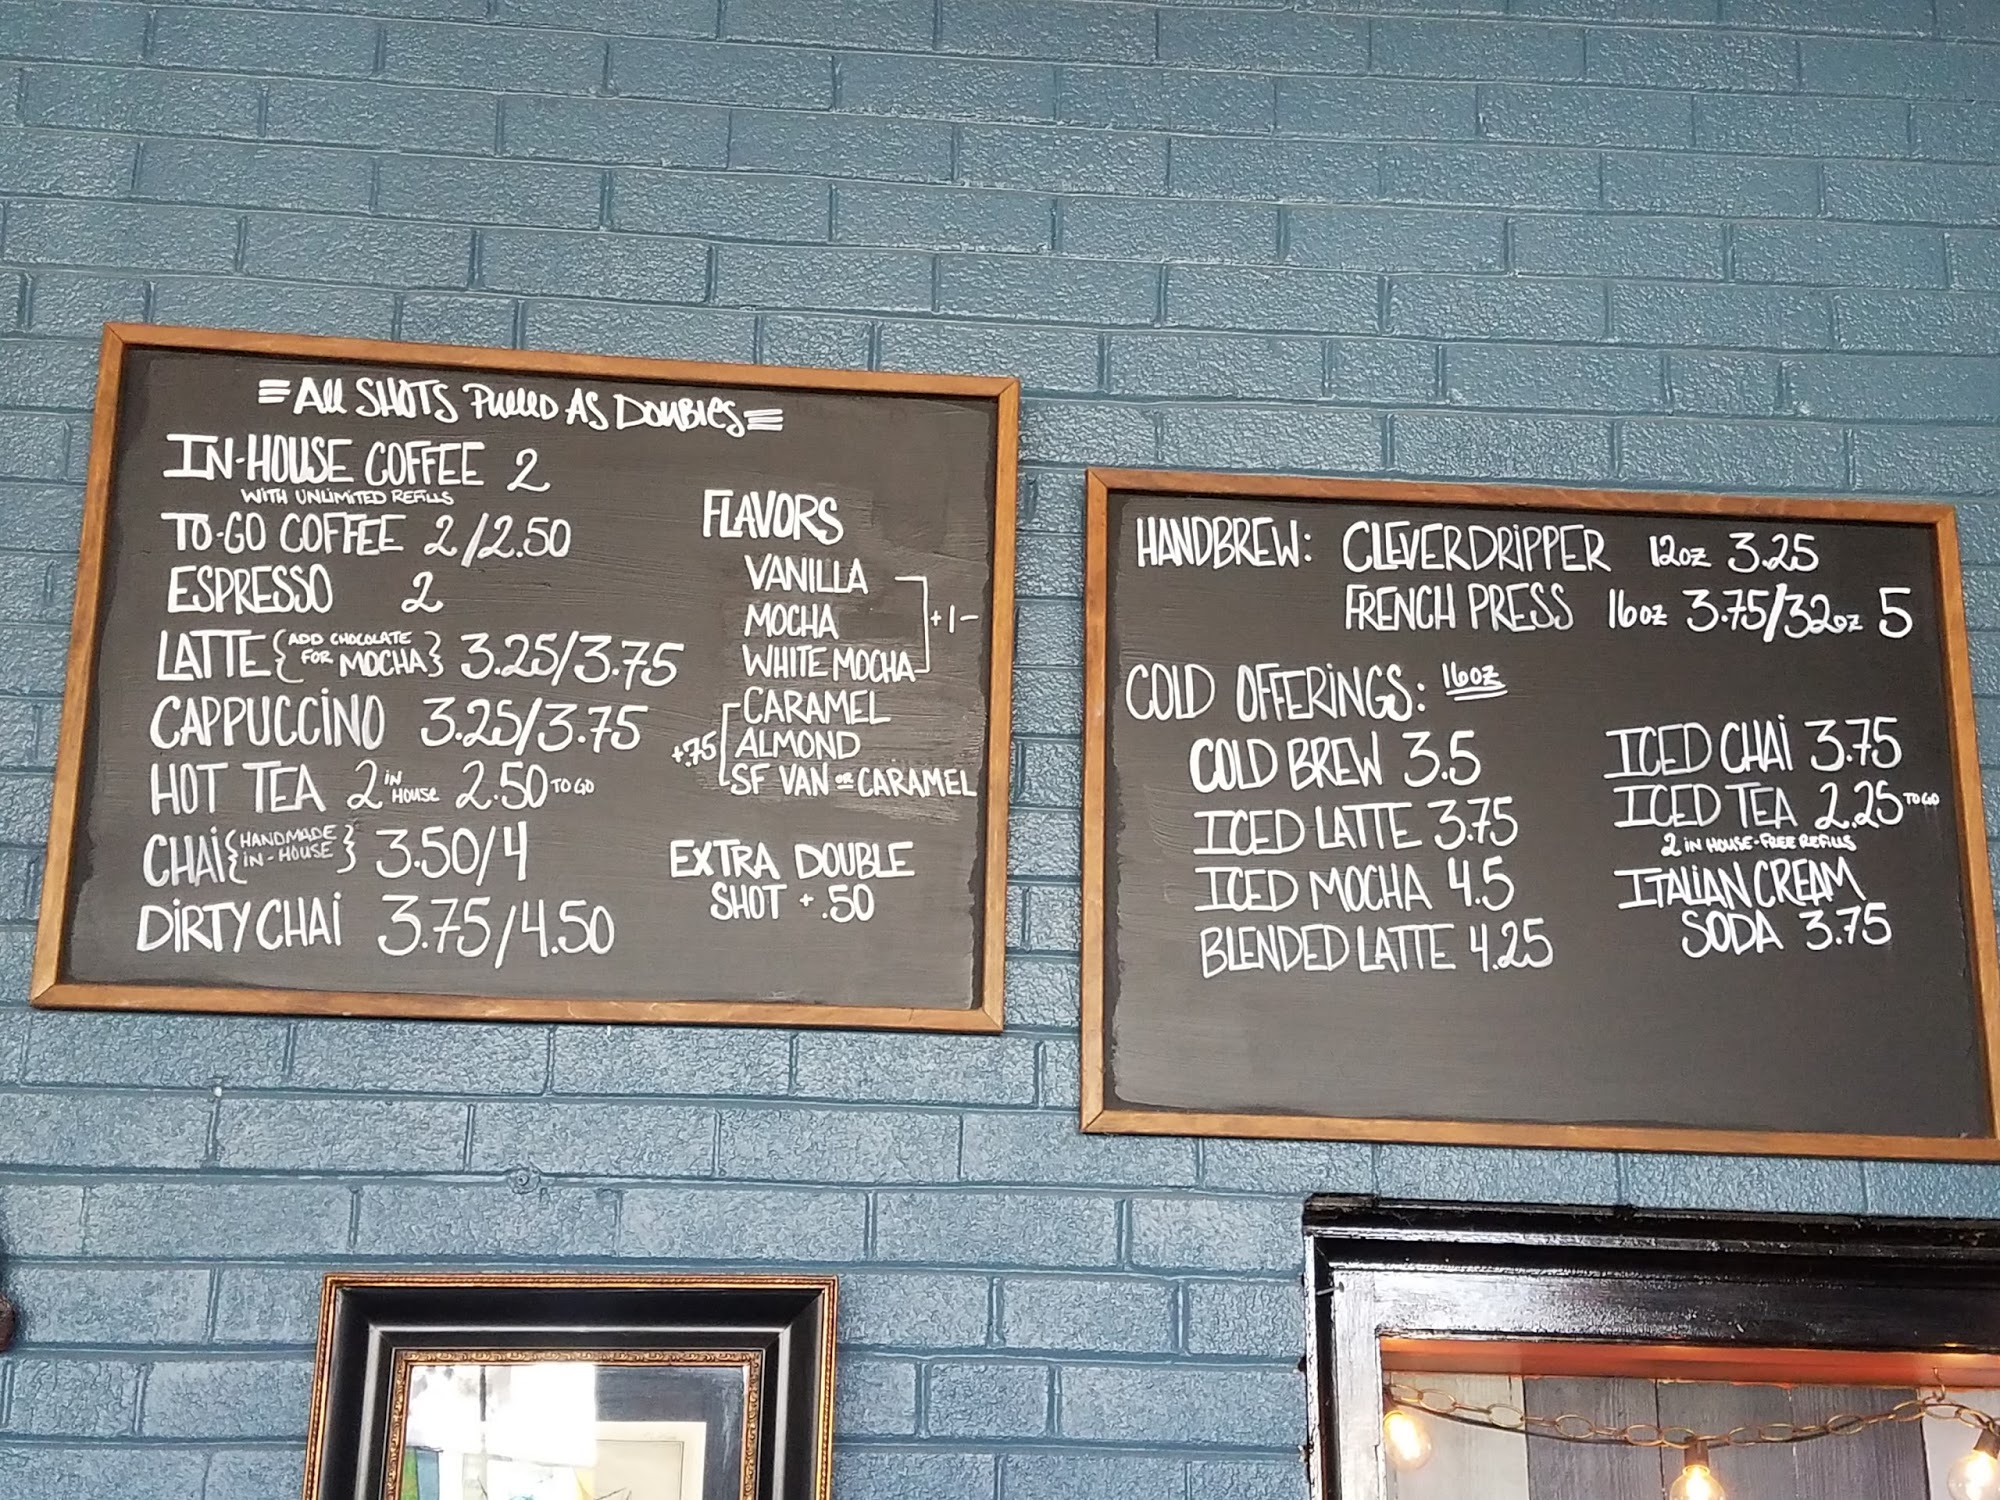 All SHOTS PULLED AS DOUBLES
IN-HOUSE COFFEE 2
WITH UNLIMITED REFILLS
TO-GO COFFEE 2/2.50
ESPRESSO 2
LATTE {ADD CHOCOLATE FOR MOCHA} 3.25/3.75
CAPPUCCINO 3.25/3.75
HOT TEA 2 IN HOUSE 2.50 TO GO
CHAI {HANDMADE IN-HOUSE} 3.50/4
DIRTY CHAI 3.75/4.50
FLAVORS
VANILLA
MOCHA
+1-
WHITE MOCHA
CARAMEL
+.75 ALMOND
SF VAN OR CARAMEL
EXTRA DOUBLE
SHOT + .50
HANDBREW: CLEVERDRIPPER 12oz 3.25
FRENCH PRESS 16oz 3.75/32oz 5
COLD OFFERINGS: 16oz
COLD BREW 3.5
ICED LATTE 3.75
ICED MOCHA 4.5
BLENDED LATTE 4.25
ICED CHAI 3.75
ICED TEA 2.25 TO GO
2 IN HOUSE-FREE REFILLS
ITALIAN CREAM
SODA 3.75